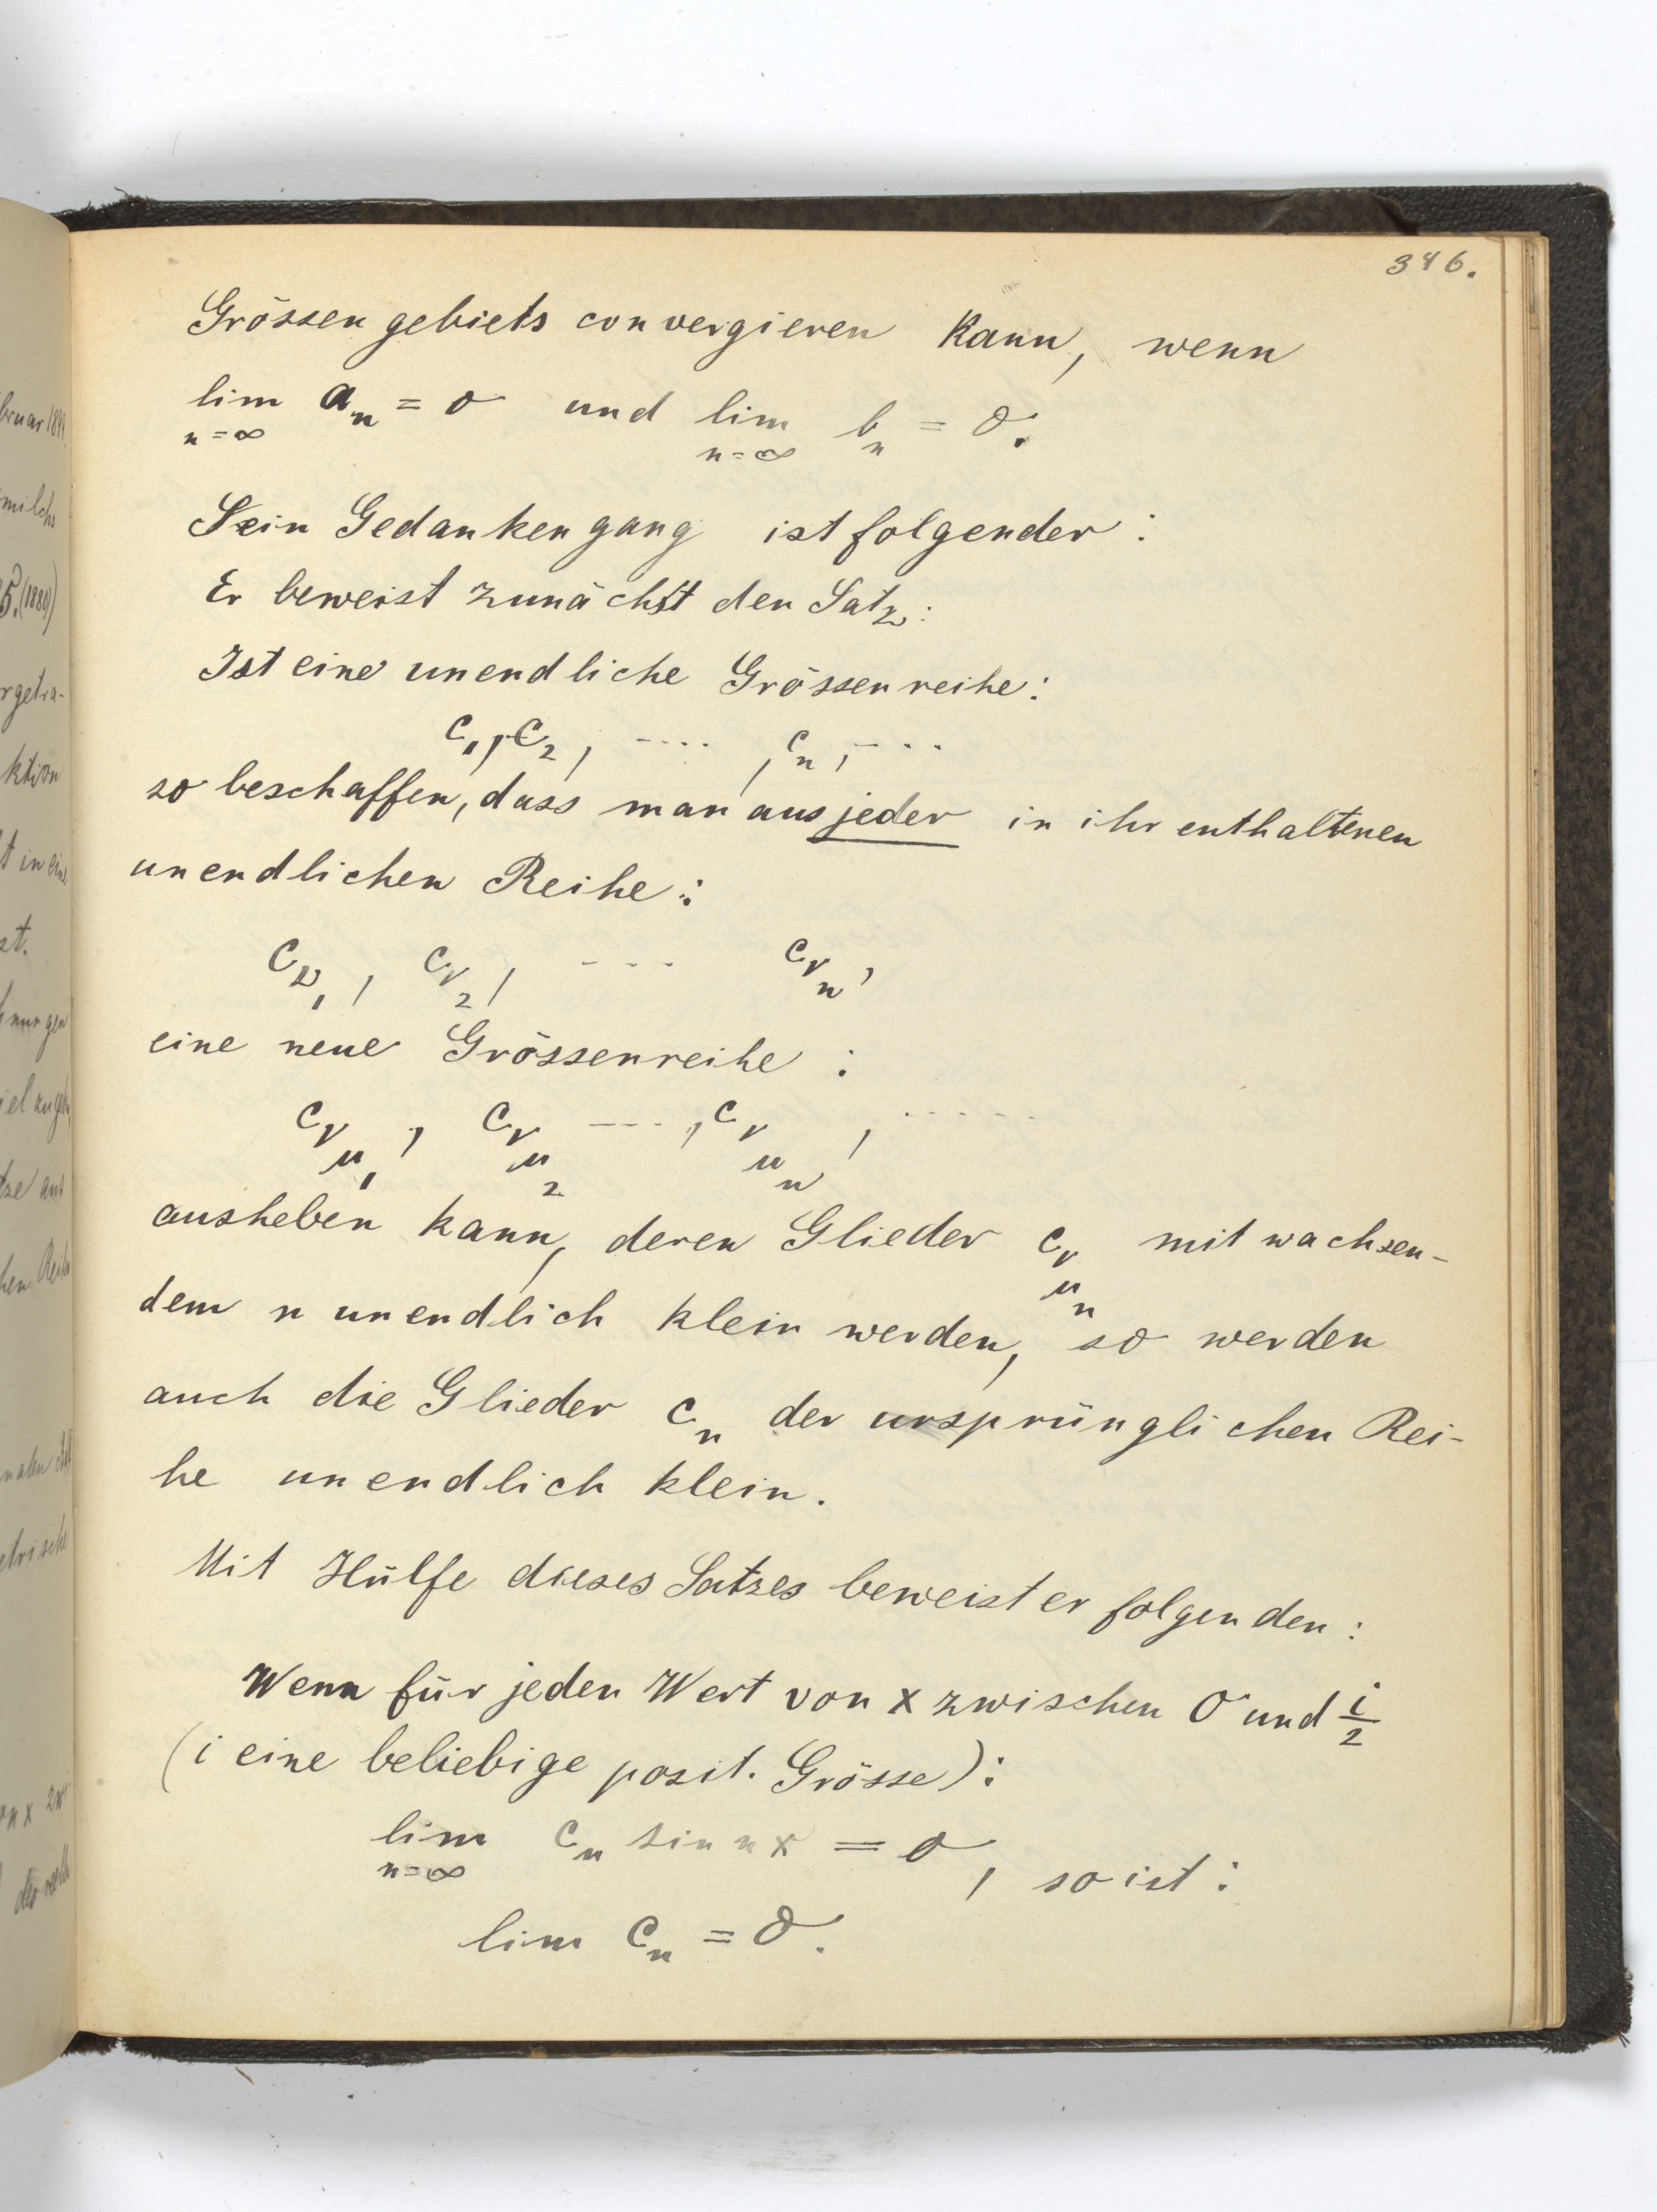 346.
Grössengebiets convergieren kann, wenn
lim a_n = 0 und lim b_n = 0.
n=∞ n=∞
Sein Gedankengang ist folgender:
Er beweist zunächst den Satz:
Ist eine unendliche Grössenreihe:
c_1, c_2, ...., c_n, ...
so beschaffen, dass man aus jeder in ihr enthaltenen
unendlichen Reihe:
c_{ν_1}, c_{ν_2}, --- c_{ν_n},
eine neue Grössenreihe:
c_{ν_{μ_1}}, c_{ν_{μ_2}} ---, c_{ν_{μ_n}}, .....
ausheben kann, deren Glieder c_{ν_{μ_n}} mit wachsen-
dem n unendlich klein werden, so werden
auch die Glieder c_n der ursprünglichen Rei-
he unendlich klein.
Mit Hülfe dieses Satzes beweist er folgenden:
Wenn für jeden Wert von x zwischen 0 und i/2
(i eine beliebige posit. Grösse):
lim c_n sin nx = 0, so ist:
n=∞
lim c_n = 0.